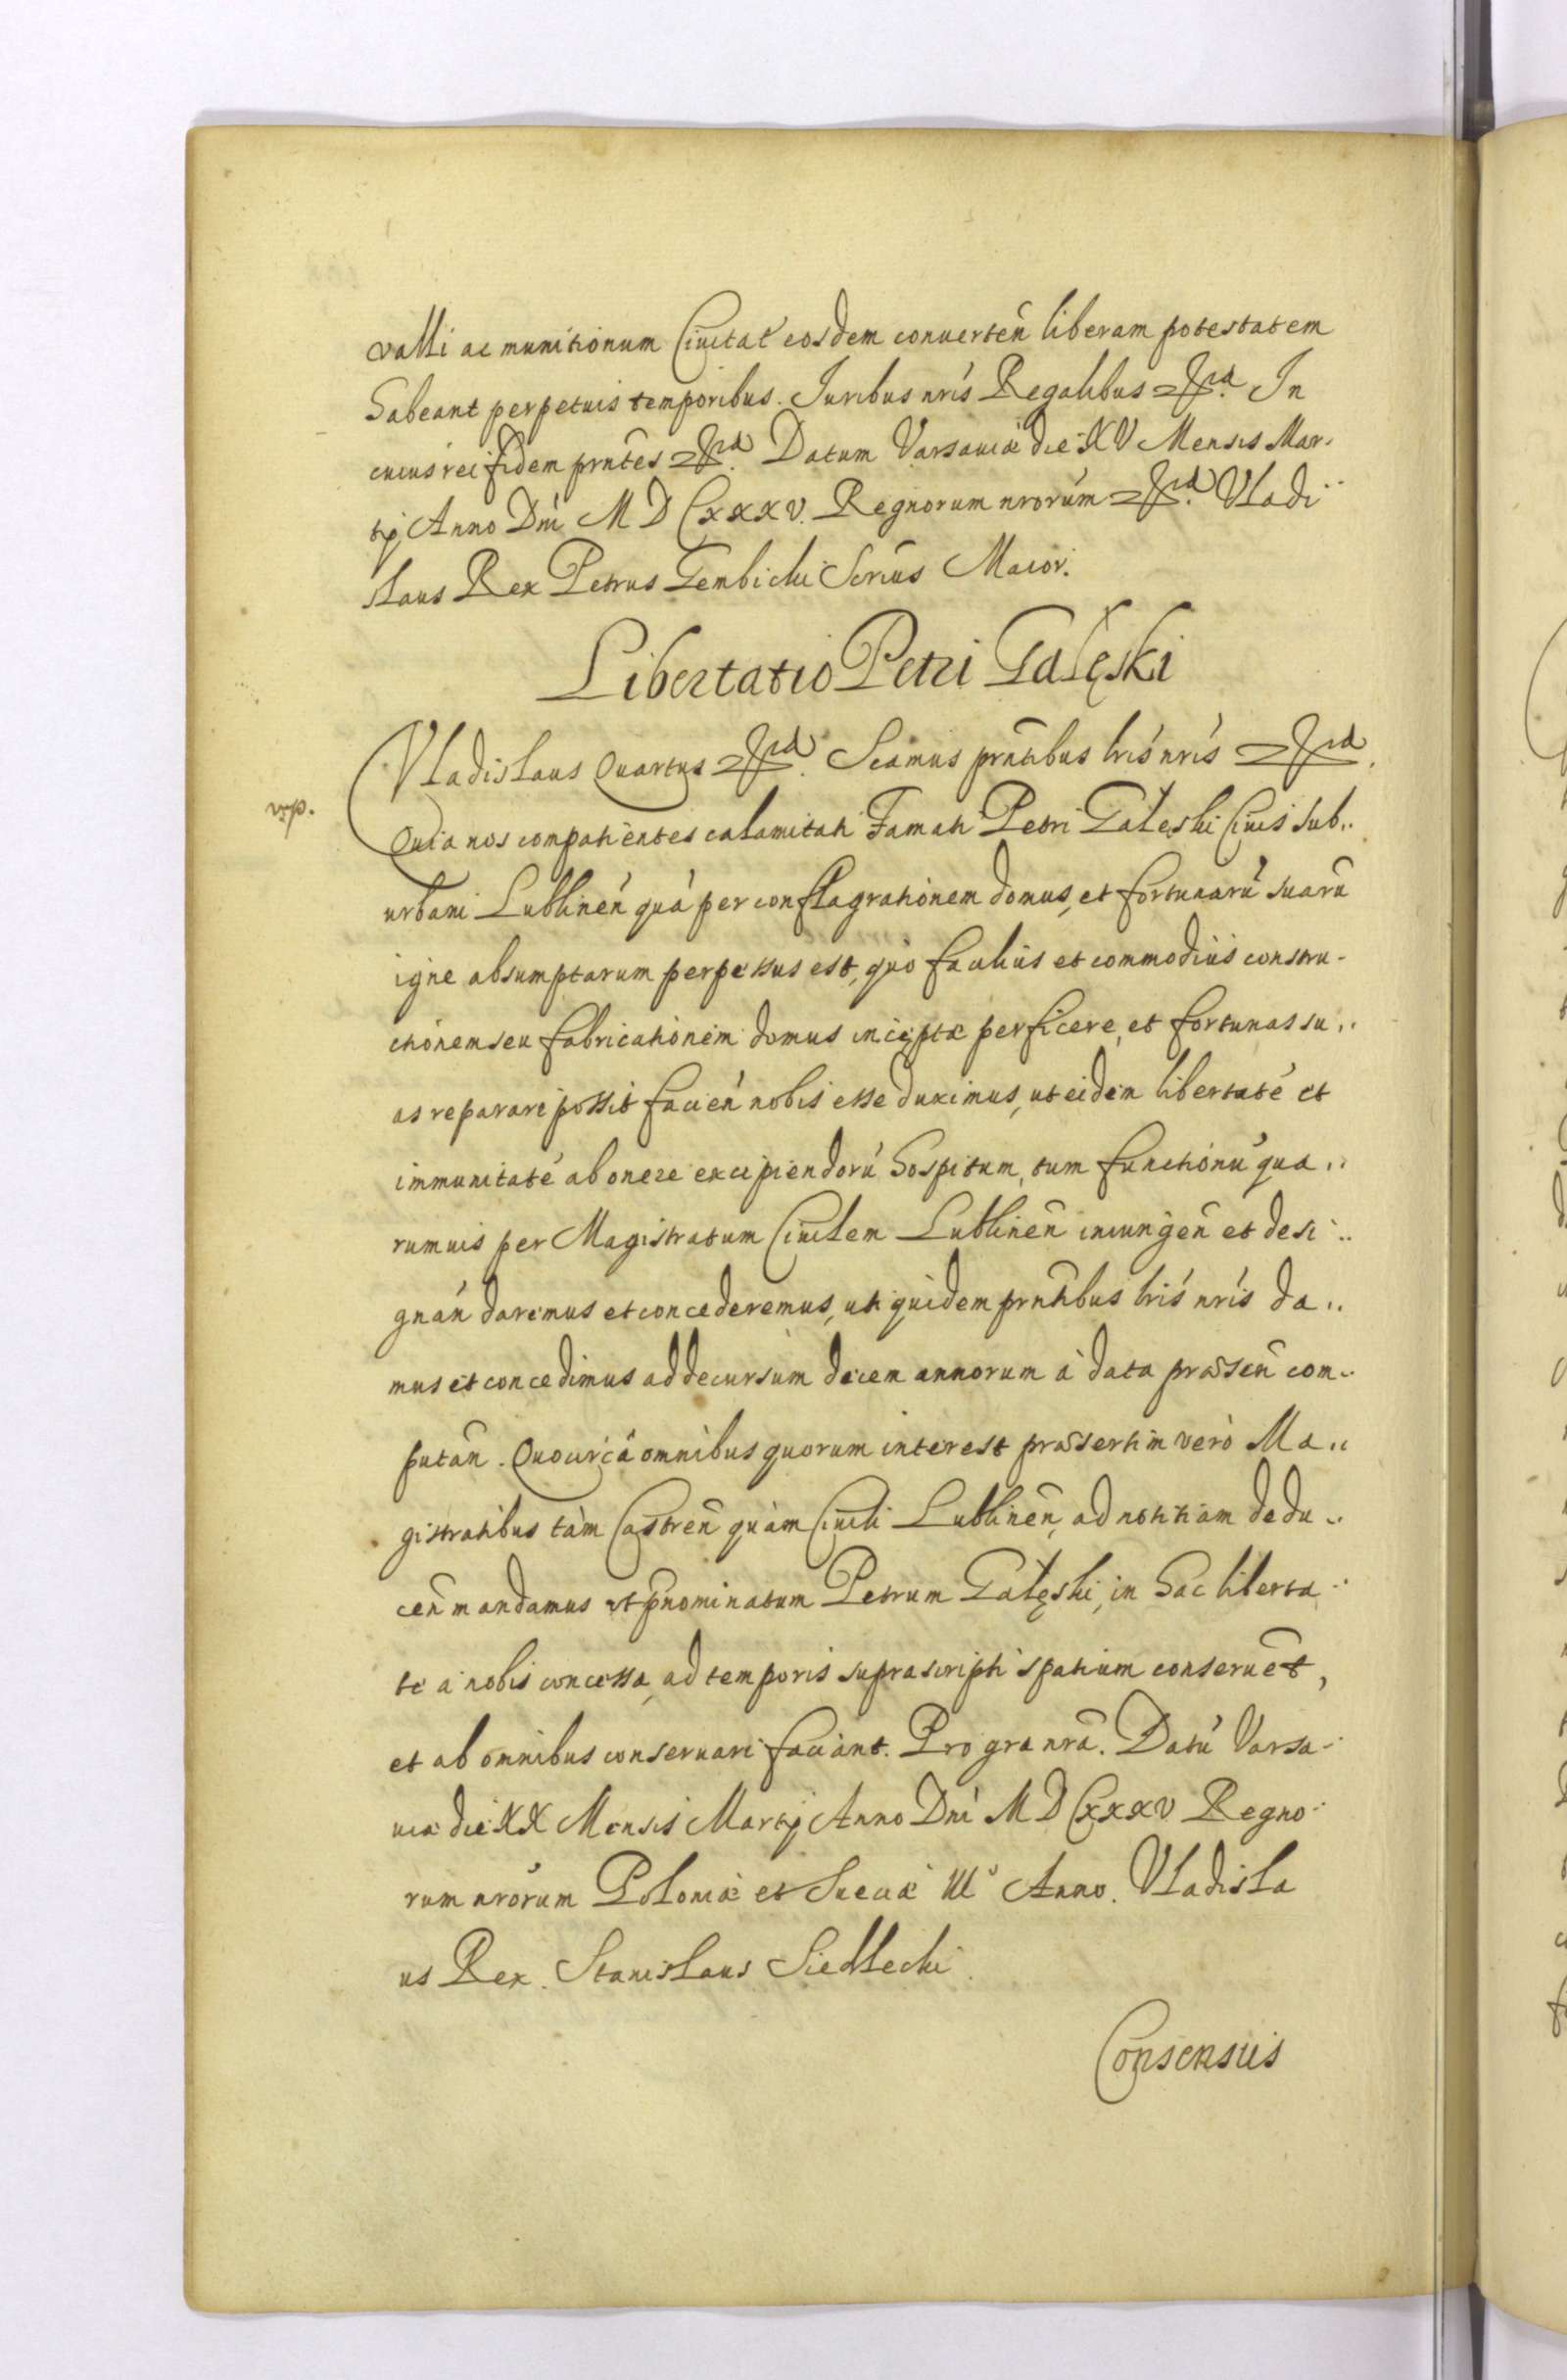 valli ac munitionum Ciuitat̃ eosdem conuerteñ liberam potestatem
habeant perpetuis temporibus. Iuribus nris̃ Regalibus etc. In
cuius rei fidem prnt̃es etc. Datum Varsauiæ die XV Mensis Mar-
tij Anno Dni̇ M D CXXXV. Regnorum nrorũm etc. Vladi-
slaus Rex Petrus Gembicki Secriũs Maior.
Libertatio Petri Gałęski
Vladislaus Quartus etc. Scimus prnt̃ibus lris̃ nris̃ etc.
Quia nos compatientes calamitati Famati Petri Gałęski Ciuis sub-
urbani Lublineñ quà per conflagrationem domus, et fortunarũ suarũ
igne absumptarum perpessus est, quò facilius et commodius constru-
ctionem seu fabricationem domus inceptæ perficere, et fortunas su-
as reparare possit facieñ nobis esse duximus, ut eidem libertatẽ et
immunitatẽ ab onere excipiendorũ hospitum, tum functionũ qua-
rumuis per Magistratum Ciuilem Lublineñ iniungeñ et desi-
gnañ daremus et concederemus, uti quidem prnt̃ibus lris̃ nris̃ da-
mus et concedimus ad decursum decem annorum à data præseñ com-
putañ. Quocircà omnibus quorum interest præsertim verò Ma-
gistratibus tàm Castreñ quàm Ciuili Lublineñ, ad notitiam dedu-
ceñ mandamus ut p̃nominatum Petrum Gałęski, in hac liberta-
te à nobis concessa, ad temporis suprascripti spatium conseruẽt,
et ab omnibus conseruari faciant. Pro gra nrã. Datũ Varsa-
uiæ die XX Mensis Martij Anno Dni̇ M D CXXXV Regno-
rum nrorũm Poloniæ et Sueciæ III° Anno. Vladisla
us Rex. Stanislaus Siedlecki
Consensus